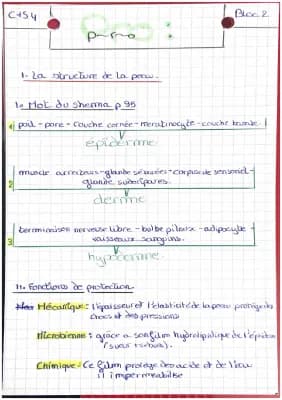 C4S4
Bloc 2
Pro :
1. La structure de la peau.
1. Mot du shema p 95
1 poil - pore - couche cornée - meratinocyte - couche
épiderme
2 muscle - glande - corpuscule sensoriel -
glande sudoripares.
derme
3 nerveuse libre - bulbe pileux - adipocyte -
vaisseaux sanguins.
hypoderme
11. Fonctions de protection
Mécanique : l'épaisseur et l'élasticité de la peau protège des
chocs et des pressions
Microbienne : grâce a son film hydrolipidique de l'épiderme
Chimique : Ce film protège des acide et de l'eau
imperméabilise